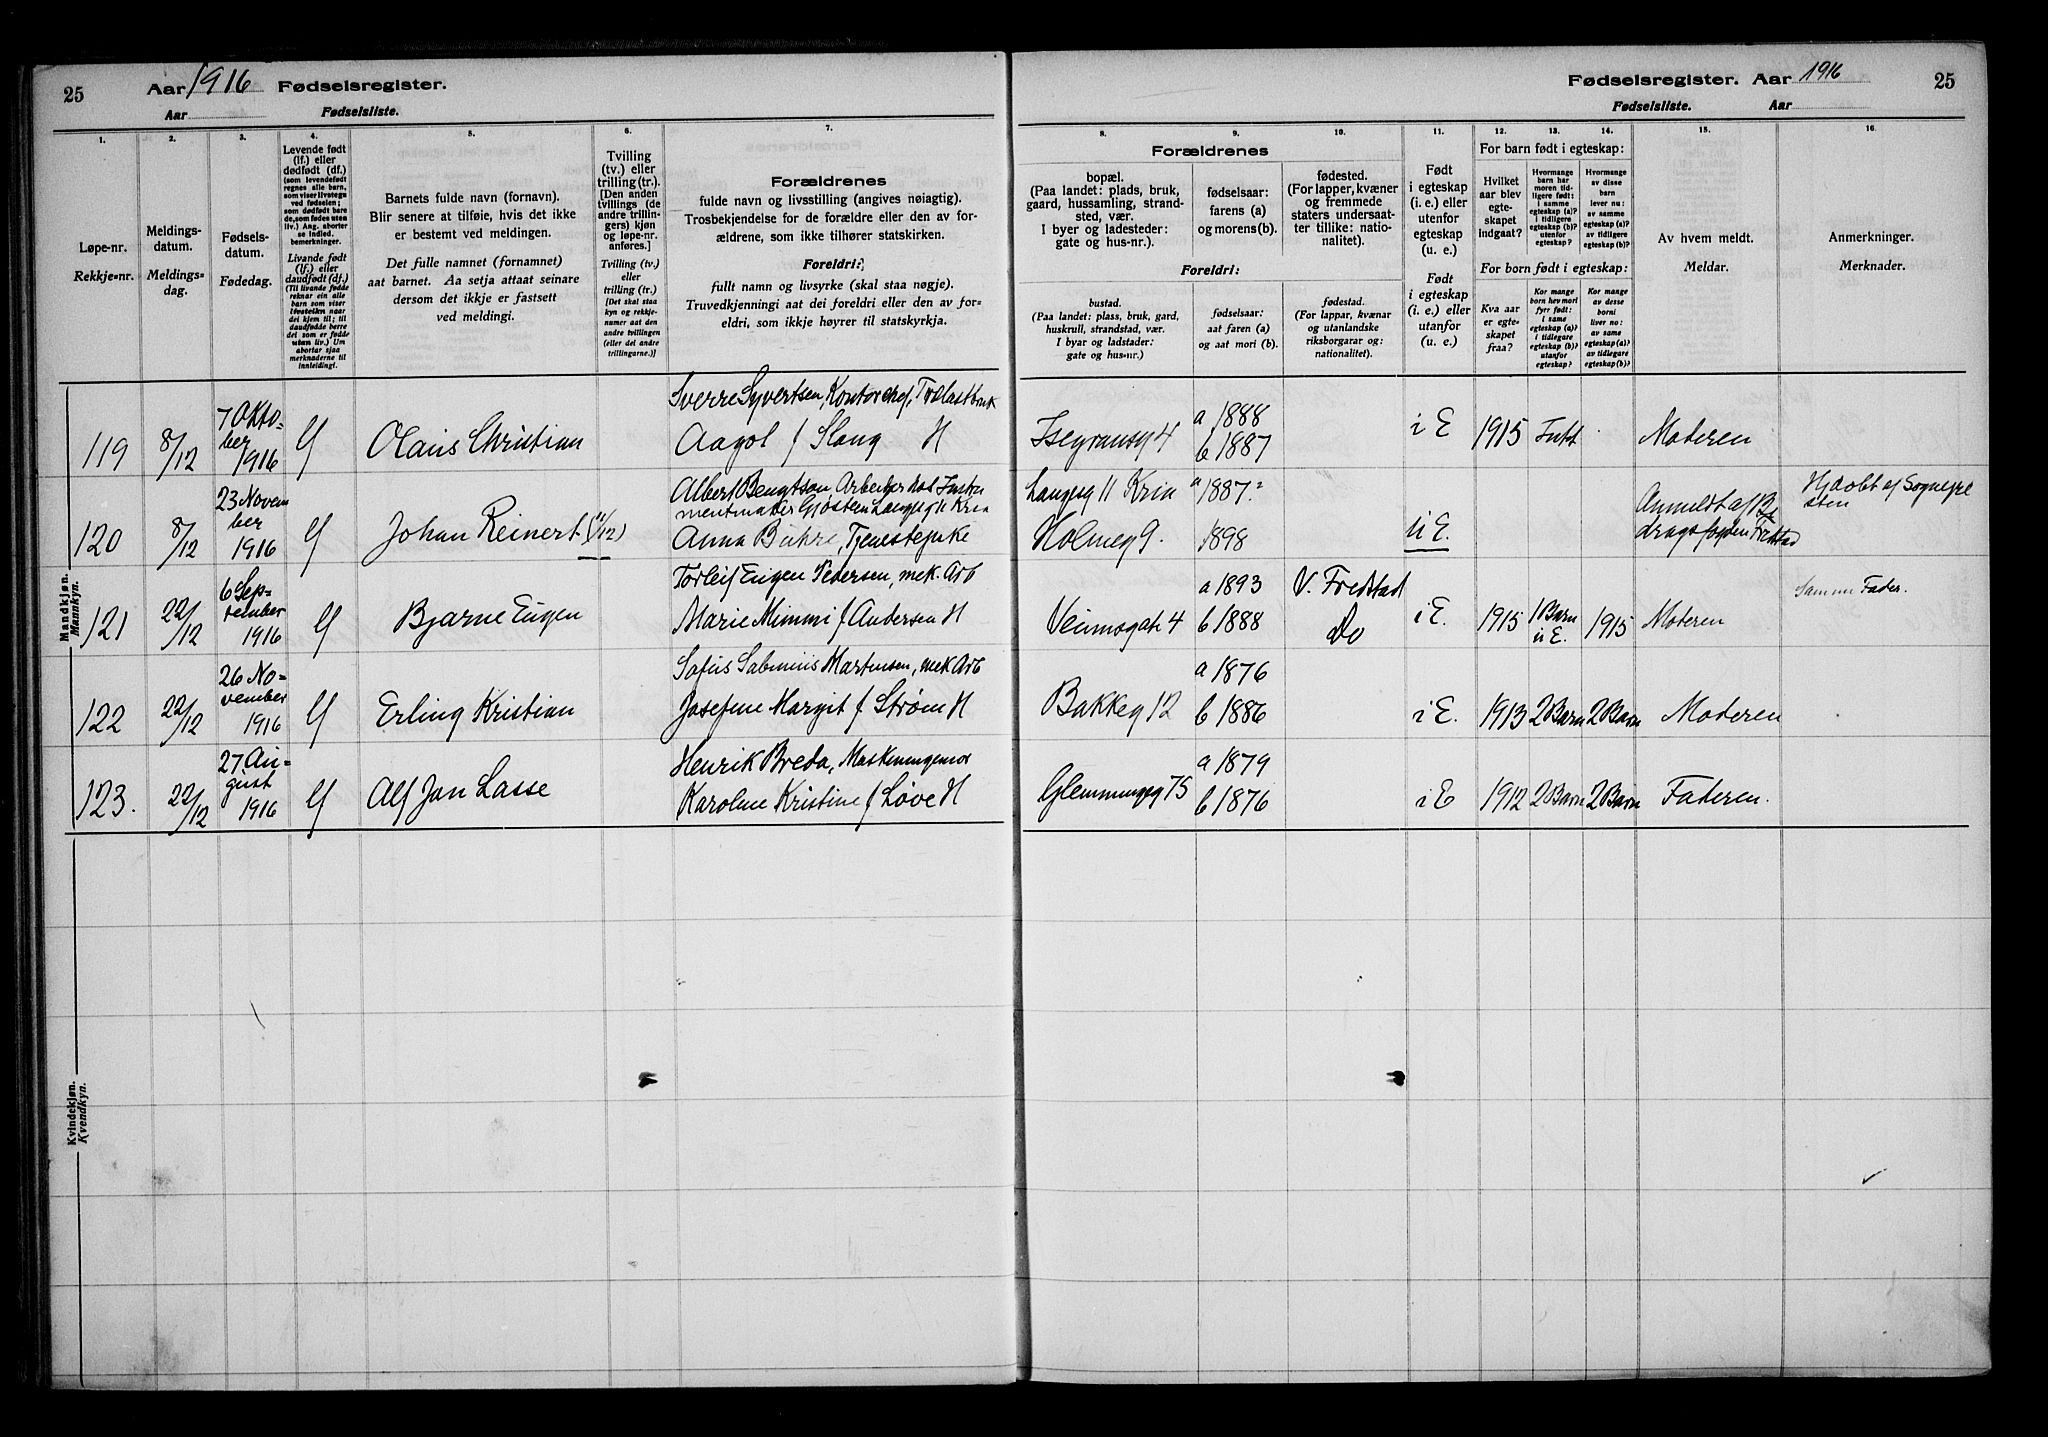 25 Aar 1916 Fødselsregister.
Aar Fødselsliste.
1. 2. 3. 4. 5. 6. 7.
Løpe-nr.
Rekkje-nr.
Meldings-
datum.
Meldings-
dag.
Fødsels-
datum.
Fødedag.
Levende født
(lf.) eller
dødfødt (df.)
(som levendefødt
regnes alle barn,
som viser livstegn
ved fødselen;
som dødfødt bare
de, som fødes uten
liv.) Ang. aborter
se indled.
bemerkninger.
Livande født
(lf.) eller
daudfødt (df.)
(Til livande fødde
reknar ein alle
born som viser
livsteikn naar
dei kjem til; til
daudfødde berre
dei som er fødde
utan liv.) Um
abortar sjaa
merknaderne til
innleidingi.
Barnets fulde navn (fornavn).
Blir senere at tilføie, hvis det ikke
er bestemt ved meldingen.
Det fulle namnet (fornamnet)
aat barnet. Aa setja attaat seinare
dersom det ikkje er fastsett
ved meldingi.
Tvilling
(tv.) eller
trilling (tr.).
[Den anden
tvillings (de
andre trillin-
gers) kjøn
og løpe-nr.
anføres.]
Tvilling (tv.)
eller
trilling (tr.)
[Det skal staa
kyn og rekkje-
numer aat den
andre tvillingen
(eller dei andre
trillingarne.)]
Forældrenes
fulde navn og livsstilling (angives nøiagtig).
Trosbekjendelse for de forældre eller den av for-
ældrene, som ikke tilhører statskirken.
Foreldri:
fullt namn og livsyrke (skal staa nøgje).
Truvedkjenningi aat dei foreldri eller den av for-
eldri, som ikkje høyrer til statskyrkja.
Mandkjøn.
Mannkyn.
119 8/12 7 Okto-
ber
1916 lf Olaus Christian
Sverre Syvertsen, Kontorchef, Trælastbruk
Aagot f Slang H
120 8/12 23 Novem
ber
1916 lf Johan Reinert
Albert Bengtson, Arbeider hos Instru
mentmaker Langeg 11 Kria
Anna Buhre, Tjenestepike
121 22/12 6 Sep-
tember
1916 lf Bjarne Eugen
Torleif Eugen Pedersen, mek. Arb
Marie Mimmi f Andersen H
122 22/12 26 No-
vember
1916 lf Erling Kristian
Martinsen, mek Arb
Josefine Margit f Strøm H
123. 22/12 27 Au-
gust
1916 lf Alf Jan Lasse
Henrik Breda, Maskiningeniør
Karoline Kristine f Løve H
Kvindekjøn.
Kvendkyn.
Fødselsregister. Aar 1916 25
Fødselsliste. Aar
8. 9. 10. 11. 12. 13. 14. 15. 16.
Forældrenes
bopæl.
(Paa landet: plads, bruk,
gaard, hussamling, strand-
sted, vær.
I byer og ladesteder:
gate og hus-nr.).
fødselsaar:
farens (a)
og morens (b).
fødested.
(For lapper, kvæner
og fremmede
staters undersaat-
ter tillike: natio-
nalitet).
Foreldri:
bustad.
(Paa landet: plass, bruk, gard,
huskrull, strandstad, vær.
I byar og ladstader:
gate og hus-nr.)
fødselsaar:
aat faren (a)
og aat mori (b).
fødestad.
(For lappar, kvænar
og utanlandske
riksborgarar og:
nationalitet).
Født
i egteskap
(i. e.) eller
utenfor
egteskap
(u. e.)
Født
i egteskap
(i. e.) eller
utanfor
(u. e.)
For barn født i egteskap:
Hvilket
aar blev
egte-
skapet
indgaat?
Hvormange
barn har
moren tid-
ligere født:
i samme
egteskap (a)?
i tidligere
egteskap (b)?
utenfor
egteskap?
Hvormange
av disse
barn
lever nu:
av samme
egteskap (a)?
av tidligere
egteskap (b)?
For born født i egteskap:
Kva aar
er egte-
skapet
fraa?
Kor mange
born hev mori
fyrr født:
i same
egteskap (a)?
i tidlegare
egteskap (b)?
utanfor
egteskap?
Kor mange
av desse
borni
liver no:
av same
egteskap (a)?
av tidlegare
egteskap (b)?
Av hvem meldt.
Meldar.
Anmerkninger.
Merknader.
Isegransg 4 a 1888
b 1887 i E 1915 Intt Moderen
Langeg 11 Kria a 1887.
Holmeg 9. 1898 u E. Anmeldt af Bi
dragsfogden Frstad Hjdøbt af Sognepre
sten
Veumsgate 4 a 1893
b 1888 V. Fredstad
Do i E. 1915 1 Barn
u E. 1915 Moderen Samme Fader.
Bakkeg 12 a 1876
b 1886 i E. 1913 2 Barn 2 Barn Moderen
Glemmingeg 75 a 1879
b 1876 i E 1912 2 Barn 2 Barn Faderen.